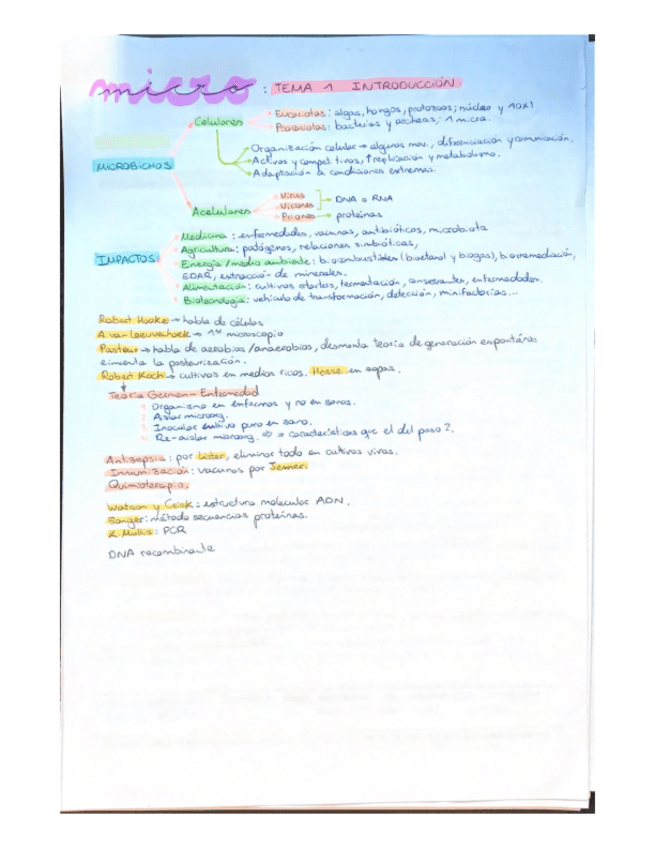 micro : TEMA 1 INTRODUCCIÓN
MICROBICHOS
Celulares
Eucariotas: algas, hongos, protozoos; núcleo y 10x1
Procariotas: bacterias y archeas; 1 micra.
Organización celular → algunos mov., diferenciación y comunicación.
Activos y competitivos, ↑ replicación y metabolismo.
Adaptación a condiciones extremas.
Acelulares
Virus
Viriones
→ DNA o RNA
Priones → proteínas
IMPACTOS
Medicina: enfermedades, vacunas, antibióticos, microbiota
Agricultura: patógenos, relaciones simbióticas,
Energía / medio ambiente: biocombustibles (bioetanol y biogas), biorremediación,
EDAR, extracción de minerales.
Alimentación: cultivos starters, fermentación, conservantes, enfermedades.
Biotecnología: vehículo de transformación, detección, minifactorías...
Robert Hooke → habla de células
A. van Leeuwenhoek → 1er microscopio
Pasteur → habla de aerobios/anaerobios, desmonta teoría de generación espontánea
e inventa la pasteurización.
Robert Koch → cultivos en medios ricos. Hesse en agar.
Teoría Germen-Enfermedad
1. Organismo en enfermos y no en sanos.
2. Aislar microorg.
3. Inocular cultivo puro en sano.
4. Re-aislar microorg. ⇒ = características que el del paso 2.
Antisepsia: por Lister, eliminar todo en cultivos vivos.
Inmunización: vacunas por Jenner.
Quimioterapia.
Watson y Crick: estructura molecular ADN.
Sanger: método secuencias proteínas.
K. Mullis: PCR
DNA recombinante